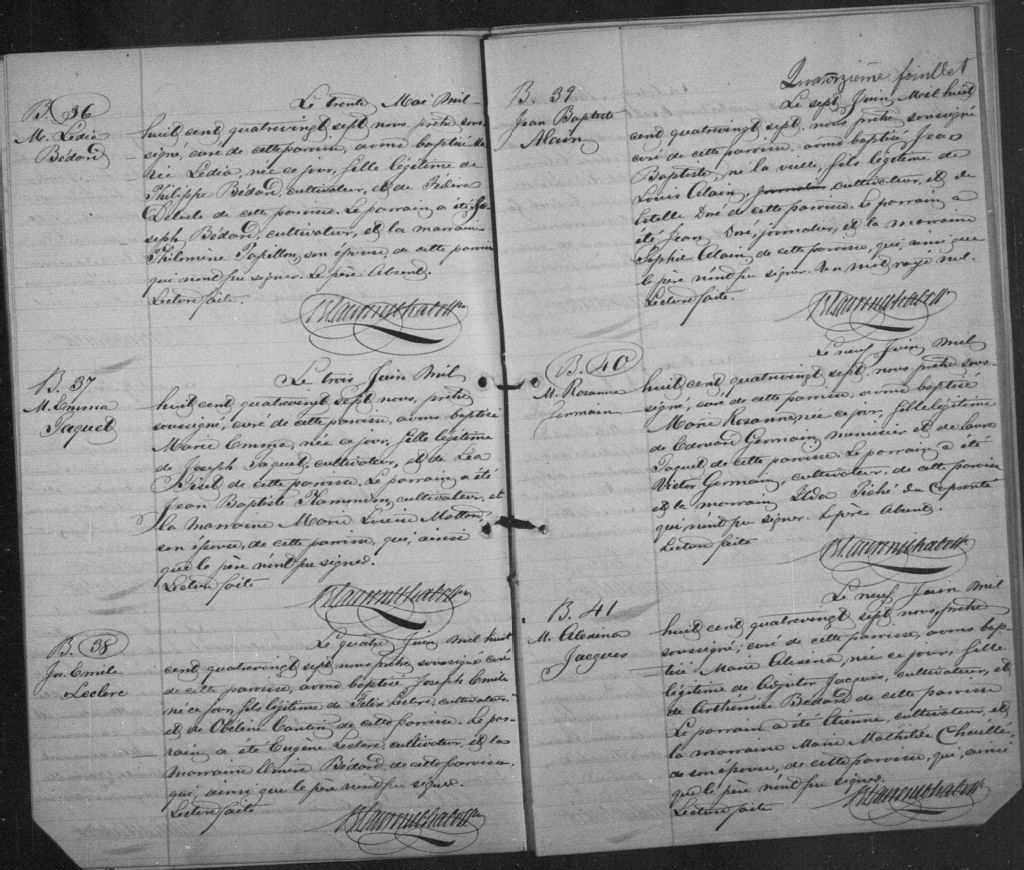 B. 36
M. Lédia
Bédard
Le trente Mai mil
huit cent quatrevingt sept nous, prêtre sous
signé, curé de cette paroisse, avons baptisé Ma
rie Lédia, née ce jour, fille légitime de
Philippe Bédard, cultivateur, et de
Delisle de cette paroisse. Le parrain a été Jo
seph Bédard, cultivateur, et la marraine
Philomène Papillon, son épouse, de cette paroisse
qui n'ont su signer. Le père absent.
Lecture faite.
B. 37
M. Emma
Jaquet
Le trois Juin mil
huit cent quatrevingt sept nous, prêtre
soussigné, curé de cette paroisse, avons baptisé
Marie Emma, née ce jour, fille légitime
de Joseph Jaquet, cultivateur, et de Léa
de cette paroisse. Le parrain a été
Jean Baptiste cultivateur, et
la marraine Marie Louise
son épouse, de cette paroisse, qui, ainsi
que le père n'ont su signer.
Lecture faite
B. 38
Jos. Emile
Leclerc
Le quatre Juin mil huit
cent quatrevingt sept nous prêtre soussigné curé
de cette paroisse, avons baptisé Joseph Emile
né ce jour, fils légitime de Félix Leclerc, cultivateur
et de Obéline Cantin de cette paroisse. Le par
rain a été Eugène Leclerc, cultivateur, et la
marraine Bédard, de cette paroisse.
qui, ainsi que le père n'ont su signer.
Lecture faite
Quatorzième feuillet
B. 39
Jean Baptiste
Alain
Le sept Juin Mil huit
cent quatrevingt sept, nous prêtre soussigné
curé de cette paroisse, avons baptisé Jean
Baptiste, né la veille, fils légitime de
Louis Alain, journalier, cultivateur, et de
Estelle Doré de cette paroisse. Le parrain a
été Jean Doré, journalier, et la marraine
Sophie Alain, de cette paroisse, qui, ainsi que
le père n'ont su signer. Un mot rayé nul.
Lecture faite.
B. 40
M. Rosanna
Germain
Le neuf Juin mil
huit cent quatrevingt sept nous prêtre sous
signé, curé de cette paroisse, avons baptisé
Marie Rosanna, née ce jour, fille légitime
de Edouard Germain, menuisier et de Laure
Jaquet de cette paroisse. Le parrain a été
Victor Germain, cultivateur, de cette paroisse
et la marraine Piché du Capsanté
qui, n'ont su signer. Le père absent.
Lecture faite
B. 41
M. Alexina
Jacques
Le neuf Juin mil
huit cent quatrevingt sept nous, prêtre
soussigné, curé de cette paroisse, avons bap
tisé Marie Alexina, née ce jour, fille
légitime de Adjutor Jacques, cultivateur, et
de Arthémise Bédard de cette paroisse
Le parrain a été Etienne, cultivateur, et
la marraine Marie Mathilde
de son épouse, de cette paroisse, qui, ainsi
que le père n'ont su signer.
Lecture faite